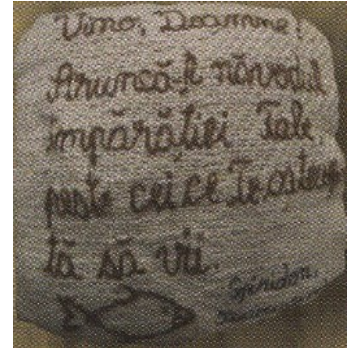 Vino, Doamne!
Aruncă-Ți năvodul
Împărăției Tale,
peste cei ce Te așteap
tă să vii.
Spiridon,